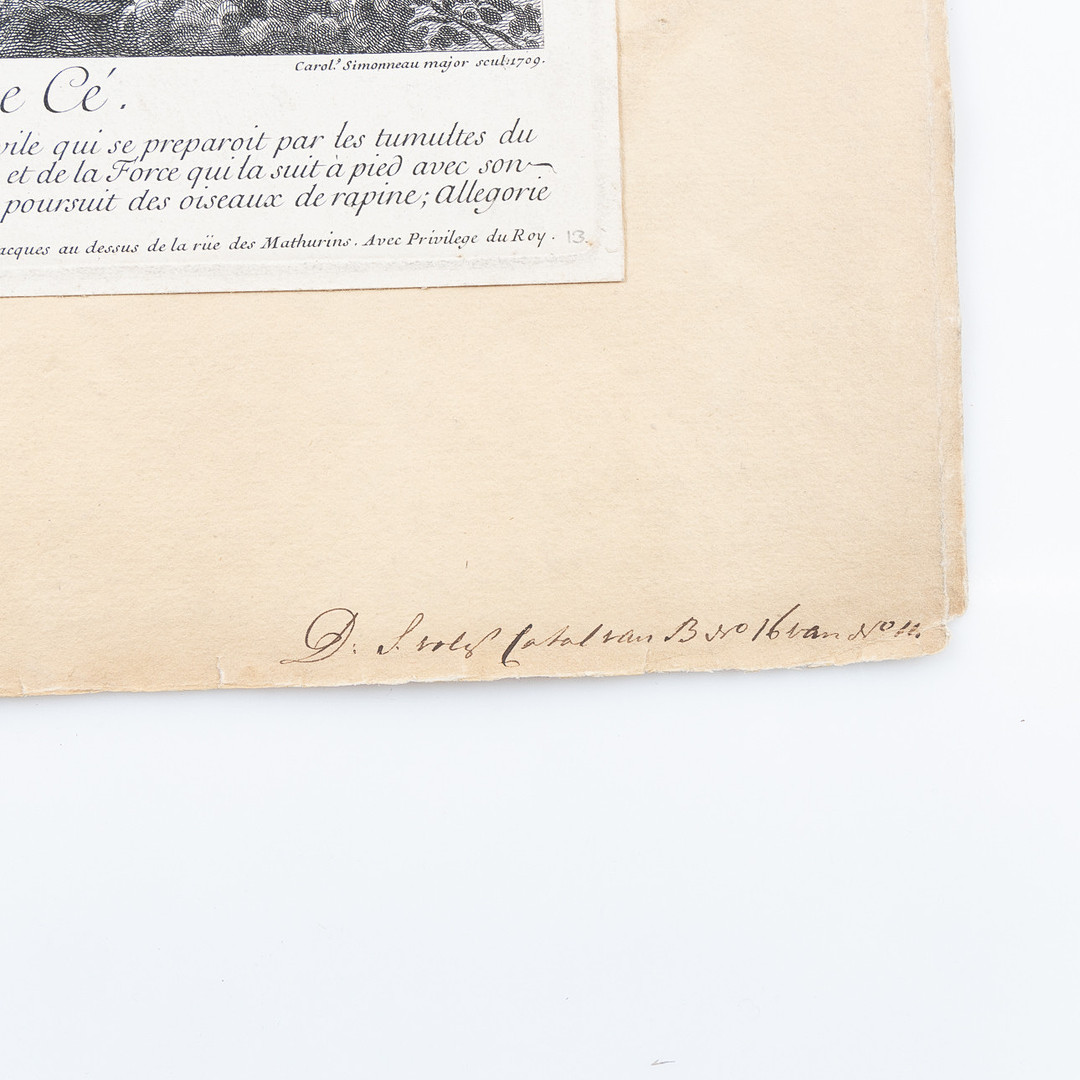 Carol.s Simonneau major scul. 1709.
e Cé.
vile qui se preparoit par les tumultes du
et de la Force qui la suit à pied avec son
poursuit des oiseaux de rapine; Allegorie
acques au dessus de la rüe des Mathurins. Avec Privilege du Roy. 13.
D: S. Catal van B No 16 van No